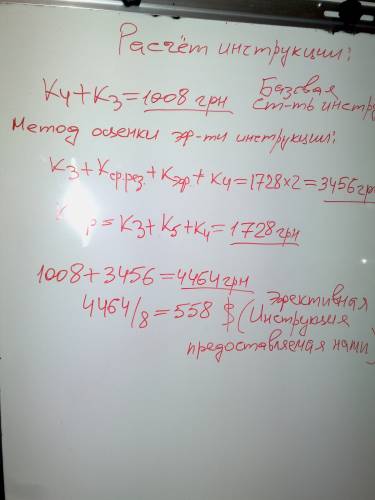 Расчёт инструкции:
К4+К3=1008 грн Базовая
ст-ть инстру
Метод оценки эф-ти инструкции:
К3+Кср.рез.+Кэф.+К4=1728×2=3456гр
К р=К3+К5+К4=1728грн
1008+3456=4464грн
4464/8=558 $ (Эфективная
Инструкция
предоставляемая нами)